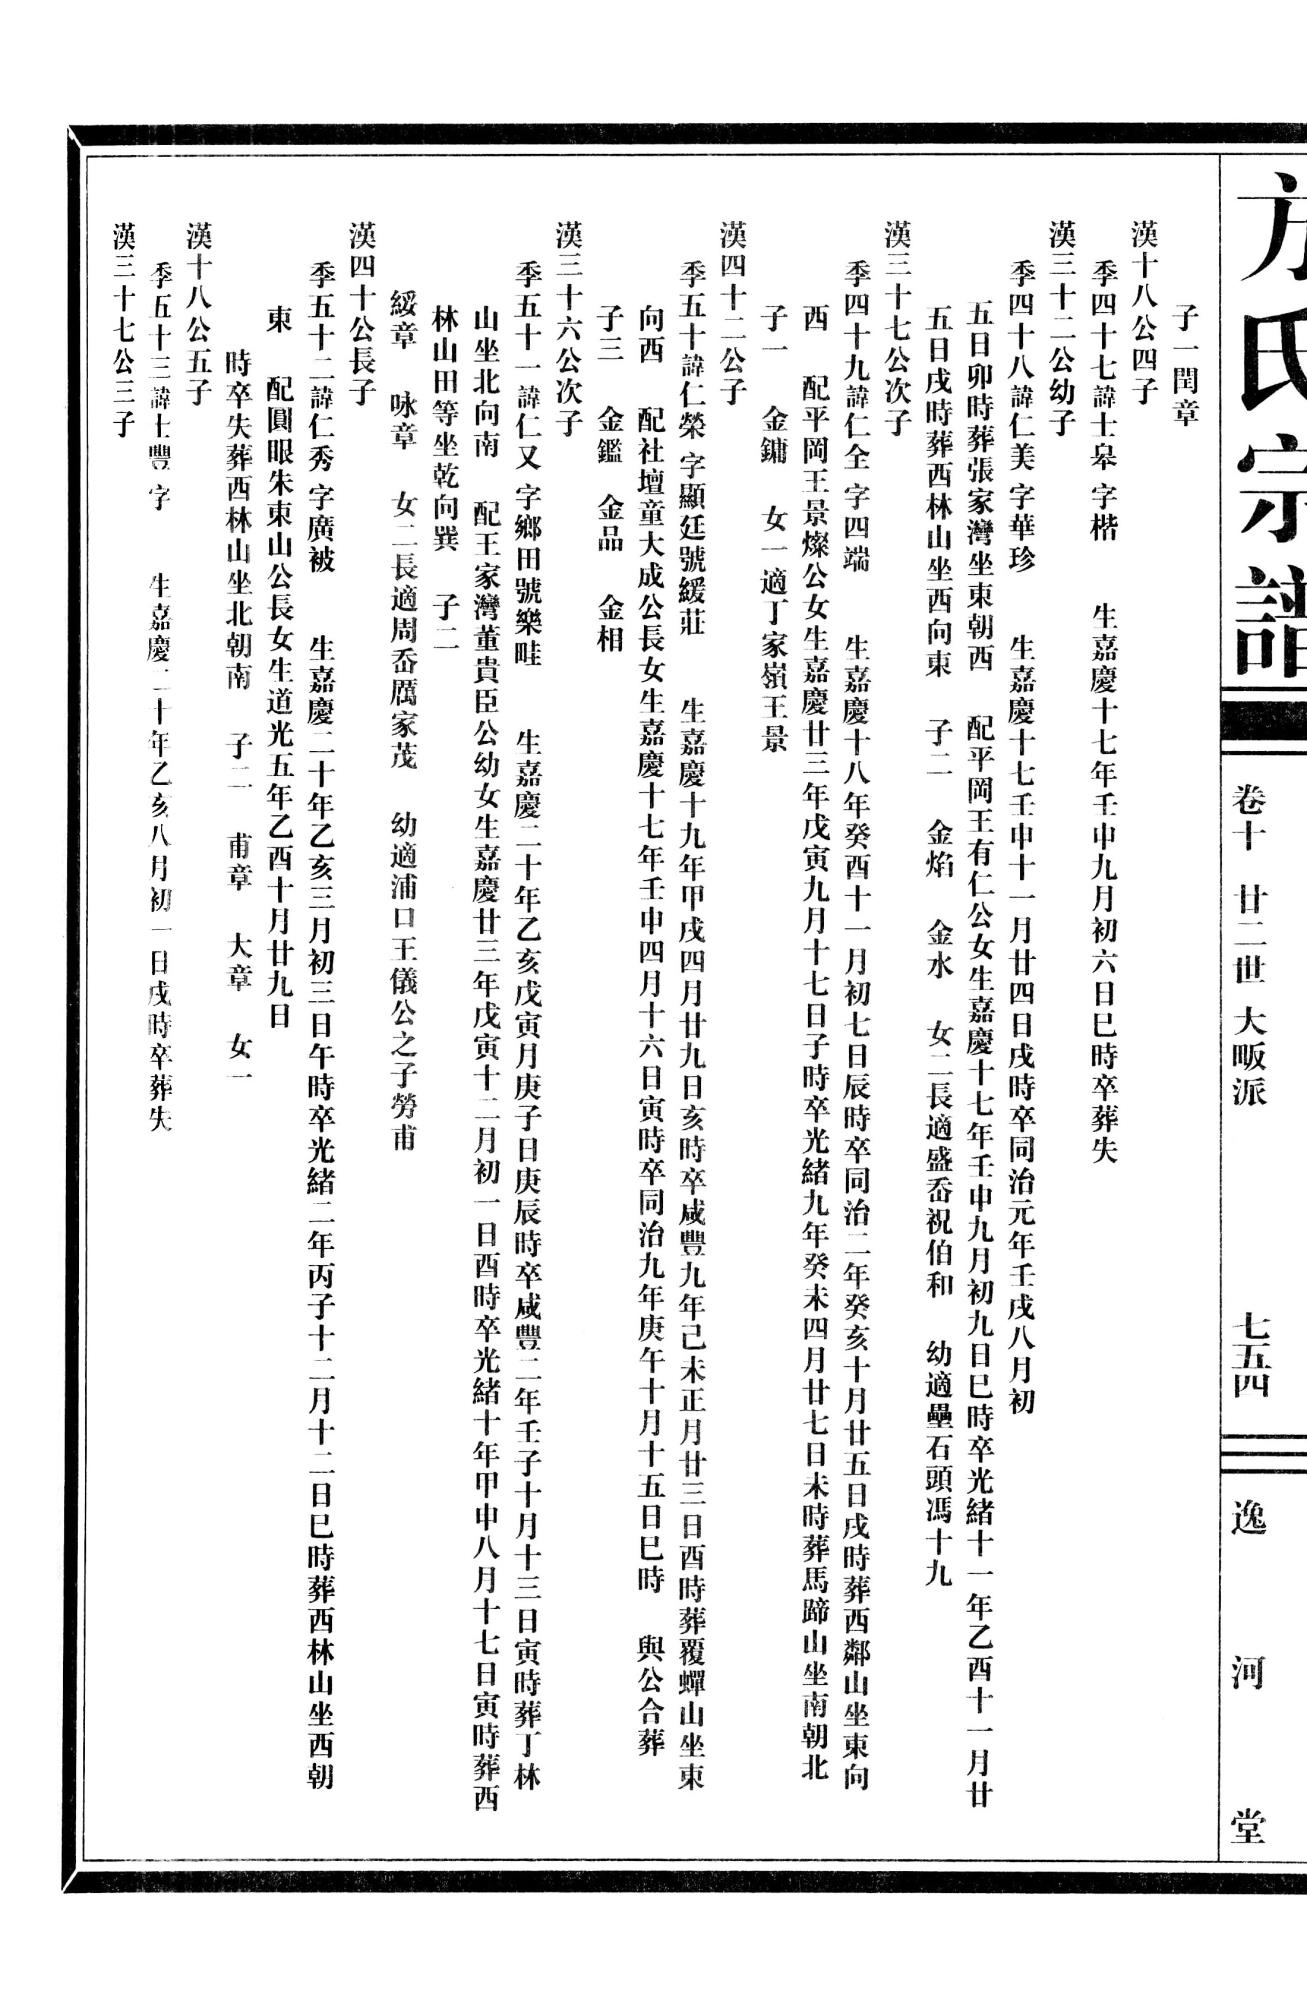 方氏宗譜
卷十 廿二世 大畈派
七五四
逸河堂
子一閏章
漢十八公四子
季四十七諱士皋字楷 生嘉慶十七年壬申九月初六日巳時卒葬失
漢三十二公幼子
季四十八諱仁美字華珍 生嘉慶十七壬申十一月廿四日戌時卒同治元年壬戌八月初
五日卯時葬張家灣坐東朝西 配平岡王有仁公女生嘉慶十七年壬申九月初九日巳時卒光緒十一年乙酉十一月廿
五日戌時葬西林山坐西向東 子二 金焰 金水 女二長適盛岙祝伯和 幼適壘石頭馮十九
漢三十七公次子
季四十九諱仁全字四端 生嘉慶十八年癸酉十一月初七日辰時卒同治二年癸亥十月廿五日戌時葬西鄰山坐東向
西 配平岡王景燦公女生嘉慶廿三年戊寅九月十七日子時卒光緒九年癸未四月廿七日未時葬馬蹄山坐南朝北
子一 金鏞 女一適丁家嶺王景
漢四十二公子
季五十諱仁榮字顯廷號緩莊 生嘉慶十九年甲戌四月廿九日亥時卒咸豐九年己未正月廿三日酉時葬覆蟬山坐東
向西 配社壇童大成公長女生嘉慶十七年壬申四月十六日寅時卒同治九年庚午十月十五日巳時 與公合葬
子三 金鑑 金品 金相
漢三十六公次子
季五十一諱仁又字鄉田號樂畦 生嘉慶二十年乙亥戊寅月庚子日庚辰時卒咸豐二年壬子十月十三日寅時葬丁林
山坐北向南 配王家灣董貴臣公幼女生嘉慶廿三年戊寅十二月初一日酉時卒光緒十年甲申八月十七日寅時葬西
林山田等坐乾向巽 子二
綏章 咏章 女二長適周岙厲家茂 幼適浦口王儀公之子勞甫
漢四十公長子
季五十二諱仁秀字廣被 生嘉慶二十年乙亥三月初三日午時卒光緒二年丙子十二月十二日巳時葬西林山坐西朝
東 配圓眼朱東山公長女生道光五年乙酉十月廿九日
時卒失葬西林山坐北朝南 子二 甫章 大章 女一
漢十八公五子
季五十三諱士豐字 生嘉慶二十年乙亥八月初一日戌時卒葬失
漢三十七公三子